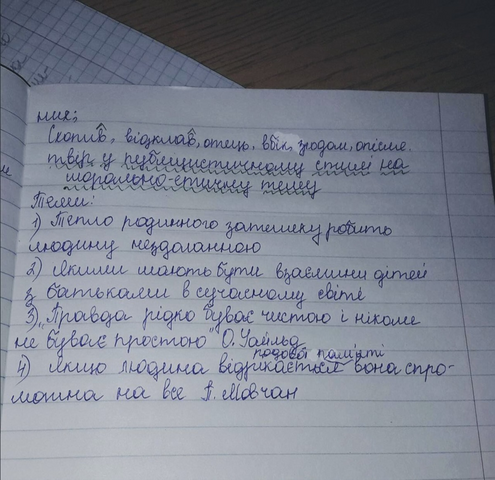 ння;
Скопив, відклав, отець, вбік, зродом, опісля.
твір у публіцистичному стилі на
морально-етичну тему
Теми:
1) Тепло родинного затишку робить
людину нездоланною
2) Якими мають бути взаємини дітей
з батьками в сучасному світі
3) "Правда рідко буває чистою і ніколи
не буває простою" О. Уайльд
родової пам'яті
4) Якщо людина відрікається вона спро-
можна на все П. Мовчан